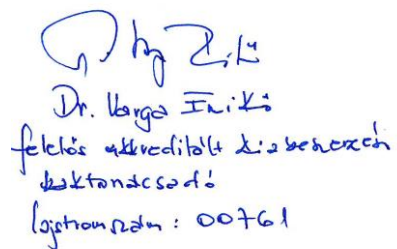 Dr. Varga Enikő
felelős akkreditált közbeszerzési
szaktanácsadó
lajstromszám: 00761